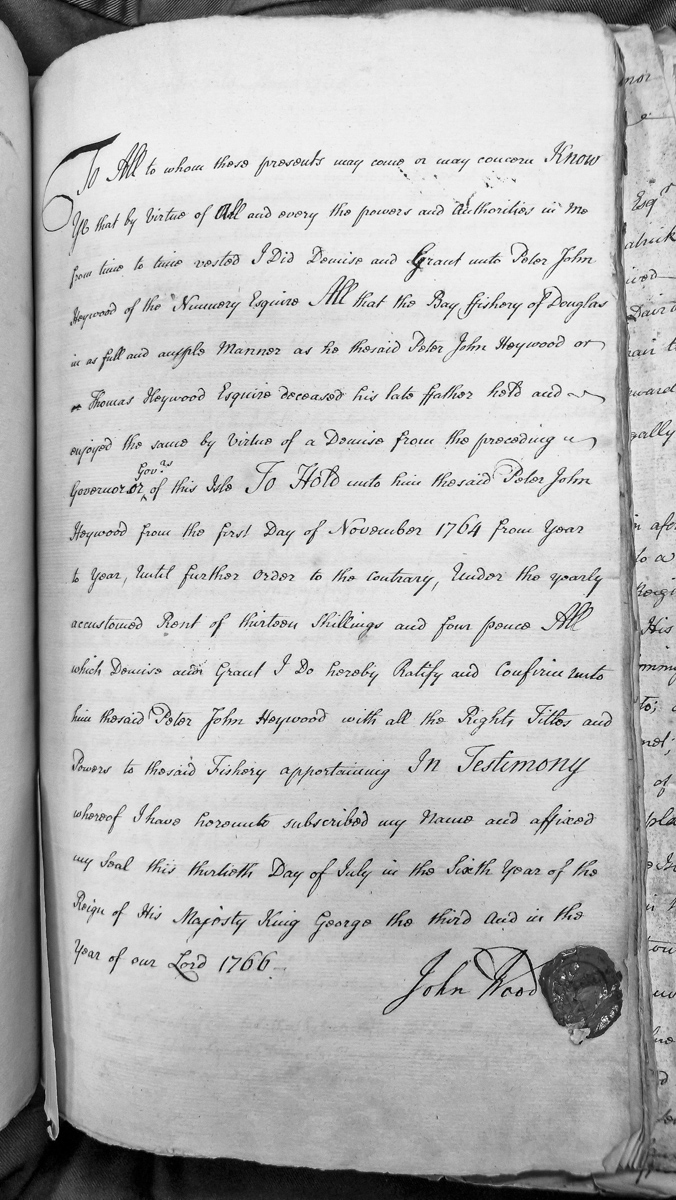 To All to whom these presents may come or may concern Know
Ye that by Virtue of All and every the powers and Authorities in me
from time to time vested I Did Demise and Grant unto Peter John
Heywood of the Nunnery Esquire All that the Bay ffishery of Douglas
in as full and ample Manner as he thesaid Peter John Heywood or
Thomas Heywood Esquire deceased his late ffather held and
enjoyed the same by Virtue of a Demise from the preceding
Governor or Gov.rs of this Isle To Hold unto him thesaid Peter John
Heywood from the first Day of November 1764 from Year
to Year, Until further Order to the Contrary, Under the yearly
accustomed Rent of thirteen Shillings and four pence All
which Demise and Grant I Do hereby Ratify and Confirm unto
him thesaid Peter John Heywood with all the Rights Titles and
Powers to thesaid Fishery appertaining In Testimony
whereof I have hereunto subscribed my Name and affixed
my Seal this thirtieth Day of July in the Sixth Year of the
Reign of His Majesty King George the third And in the
Year of our Lord 1766
John Wood